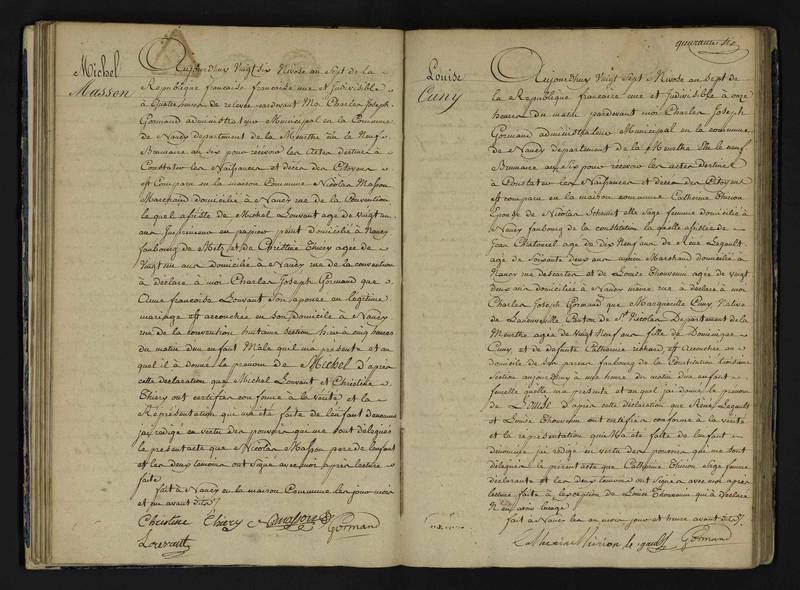 Michel
Masson
Aujourdhuy Vingt six Nivose an Sept de la
République francaise francaise une et Jndivisible
à Quatre heures de relevée pardevant Moi Charles Joseph
Gormand administrateur Municipal en la Commune
de Nancy département de la Meurthe élu le Neuf
Brumaire an Six pour recevoir les actes destinés à
Constater les Naissances et décès des Citoyens
est Comparu en la maison Commune Nicolas Masson
Marchand domicilié à Nancy rue de la Convention
lequel assisté de Michel Louvant agé de Vingt un
ans Imprimeur en papier peint domicilié à Nancy
faubourg de Metz et de Christine Thiery agée de
Vingt un ans domiciliée à Nancy rue de la convention
à déclaré à moi Charles Joseph Gormand que
Anne francoise Louvant son épouse en légitime
mariage est accouchée en son domicile à Nancy
rue de la convention huitieme Section hier à cinq heures
du matin d'un enfant Mâle quil ma présenté et au
quel il à donné le prenom de Michel d'après
cette déclaration que Michel Louvant et Christine
Thiery ont certifiée conforme à la vérité et la
Représentation qui ma été faite de lenfant denommé
jai redigé en vertu des pouvoirs qui me sont délégués
le présent acte que Nicolas Masson pere de lenfant
et les deux temoins ont signé avec moi après lecture
faite
fait à Nancy en la maison Commune les jour mois
et an avant dits
Christine Thiery Masson Gormand
Louvant
quarante
Louise
Cuny
Aujourdhuy Vingt Sept Nivose an Sept de
la République francaise une et Jndivisible à onze
heures du matin pardevant moi Charles Joseph
Gormand administrateur Municipal en la commune
de Nancy département de la Meurthe élu le neuf
Brumaire an Six pour recevoir les actes destinés
à Constater les Naissances et décès des Citoyens
est comparu en la maison commune Catherine Thirion
Epouse de Nicolas Schmitt elle Sage femme domiciliée à
Nancy faubourg de la constitution laquelle assistée de
Jean agé de dix Neuf ans de René Legault
agé de Soixante deux ans Marchand domicilié à
Nancy rue descartes et de Louise Thouvenin agée de vingt
deux ans domiciliée à Nancy même rue à déclaré à moi
Charles Joseph Gormand que Marguerite Cuny Native
de Laneuveville Canton de St Nicolas Departement de la
Meurthe agée de vingt Neuf ans fille de Dominique
Cuny et de défunte Catherine richard est accouchée au
domicile de son parein faubourg de la Constitution
Section aujourdhuy à une heure du matin d'un enfant
femelle quelle ma présenté et auquel jai donné le prénom
de Louise d'après cette déclaration que René Legault
et Louise Thouvenin ont certifiée conforme à la vérité
et la représentation qui Ma été faite de lenfant
denommée jai redigé en vertu des pouvoirs qui me sont
délégués le présent acte que Catherine Thirion Sage femme
déclarante et les deux temoins ont Signé avec moi après
lecture faite à lexception de Louise Thouvenin qui à déclaré
N'en avoir lusage
fait à Nancy les an mois jour et heure avant dits
Catherine thirion le gault Gormand